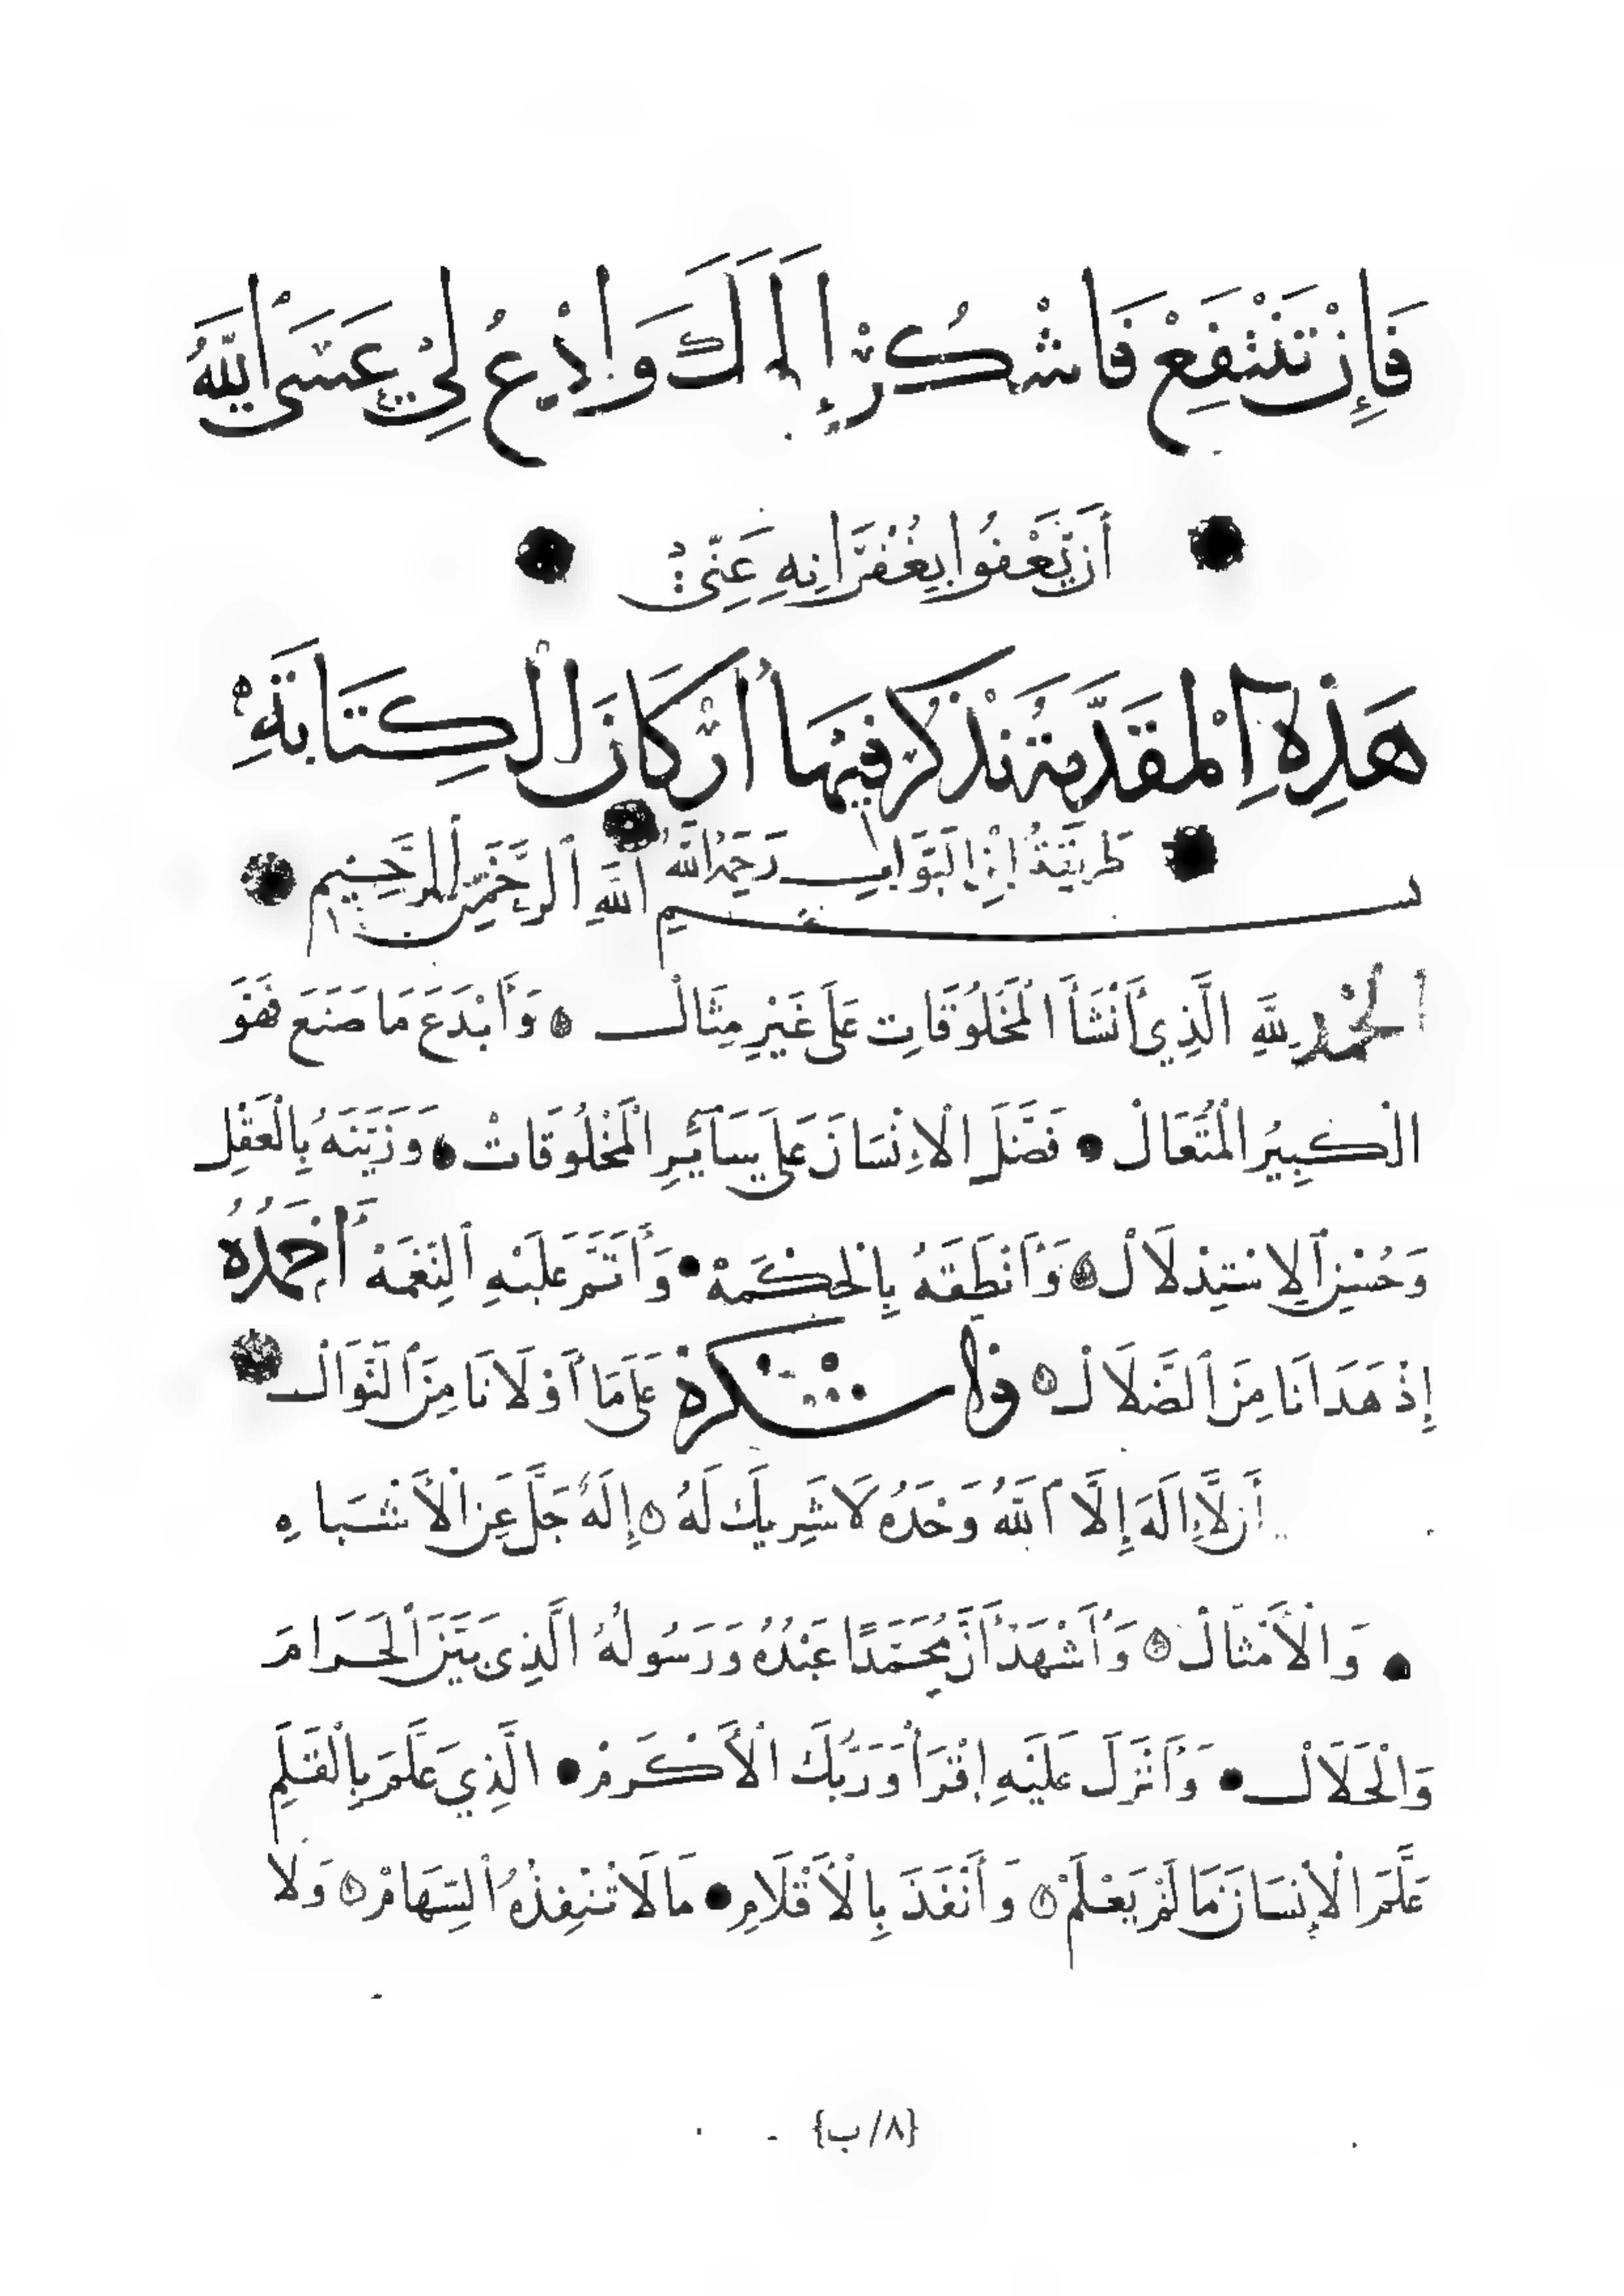 فَإِنْ تَنْتَفِعْ فَاشْكُرْ إِلَهَكَ وَادْعُ لِيْ عَسَى اللَّهُ
أَنْ يَعْفُوا بِغُفْرَانِهِ عَنِّيْ
هَذِهِ الْمُقَدِّمَةُ نَذْكُرُ فِيْهَا أَرْكَانَ الْكِتَابَةِ
طَرِيقَةُ ابْنِ الْبَوَّابِ رَحِمَهُ اللَّهُ
بِسْمِ اللَّهِ الرَّحْمَنِ الرَّحِيمِ
الْحَمْدُ لِلَّهِ الَّذِي أَنْشَأَ الْمَخْلُوقَاتِ عَلَى غَيْرِ مِثَالْ ۝ وَأَبْدَعَ مَا صَنَعَ فَهُوَ
الْكَبِيرُ الْمُتَعَالْ ● فَضَّلَ الْإِنْسَانَ عَلَى سَآئِرِ الْمَخْلُوقَاتْ ● وَزَيَّنَهُ بِالْعَقْلِ
وَحُسْنِ الِاسْتِدْلَالْ ۝ وَأَنْطَقَهُ بِالْحِكْمَهْ ● وَأَتَمَّ عَلَيْهِ النِّعْمَهْ أَحْمَدُهُ
إِذْ هَدَانَا مِنَ الضَّلَالْ ۝ وَاشْكُرُهُ عَلَى مَا أَوْلَانَا مِنَ النَّوَالْ
أَنْ لَّا إِلَهَ إِلَّا اللَّهُ وَحْدَهُ لَا شَرِيكَ لَهُ ۝ إِلَهٌ جَلَّ عَنِ الْأَشْبَاهِ
● وَالْأَمْثَالْ ۝ وَأَشْهَدُ أَنَّ مُحَمَّدًا عَبْدُهُ وَرَسُولُهُ الَّذِي بَيَّنَ الْحَرَامَ
وَالْحَلَالْ ● وَأَنْزَلَ عَلَيْهِ اقْرَأْ وَرَبُّكَ الْأَكْرَمُ ● الَّذِي عَلَّمَ بِالْقَلَمِ
عَلَّمَ الْإِنْسَانَ مَا لَمْ يَعْلَمْ ۝ وَأَنْفَذَ بِالْأَقْلَامِ ● مَا لَا تُنْفِذُهُ السِّهَامْ ۝ وَلَا
{٨/ب}